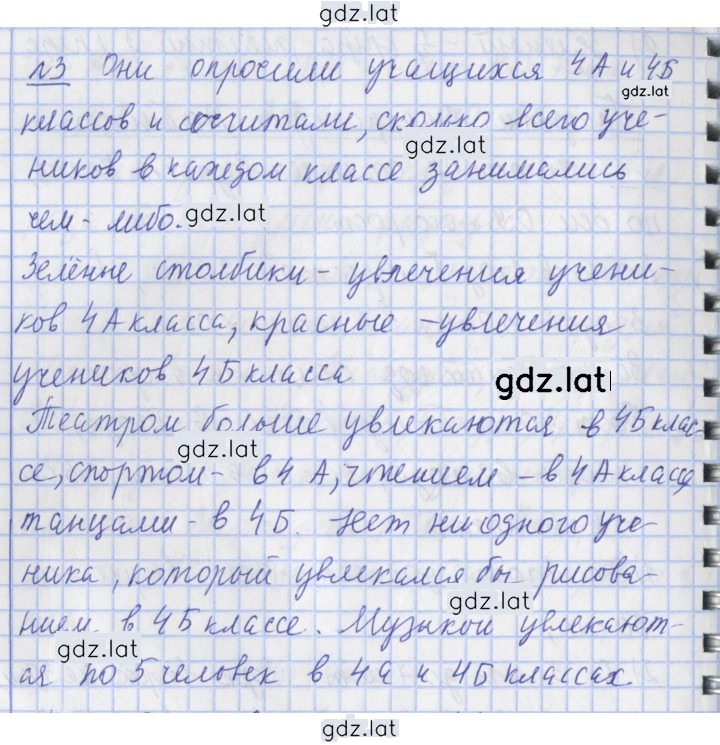 gdz.lat
№3 Они опросили учащихся 4А и 4Б
gdz.lat
классов и сосчитали, сколько всего уче-
gdz.lat
ников в каждом классе занимались
чем-либо.
gdz.lat
Зелёные столбики - увлечения учени-
ков 4А класса, красные - увлечения
учеников 4Б класса
gdz.lat
Театром больше увлекаются в 4Б клас-
gdz.lat
се, спортом - в 4 А, чтением - в 4А классе,
танцами - в 4Б. Нет ни одного уче-
ника, который увлекался бы рисова-
gdz.lat
нием в 4Б классе. Музыкой увлекают-
gdz.lat
ся по 5 человек в 4а и 4Б классах.
gdz.lat